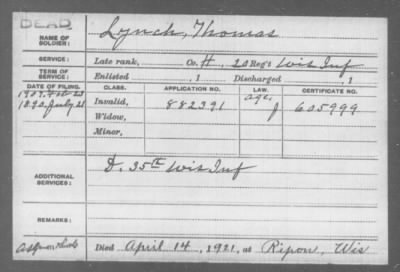 DEAD
NAME OF SOLDIER: Lynch, Thomas
SERVICE: Late rank, Co. H, 20 Reg't Wis Inf
TERM OF SERVICE: Enlisted , 1 Discharged , 1
DATE OF FILING. CLASS. APPLICATION NO. LAW. CERTIFICATE NO.
1907. Feb 23 age,
1890. July 21 Invalid, 882391 J 605999
Widow,
Minor,
ADDITIONAL SERVICES: D. 35th Wis Inf
REMARKS:
Died April 14, 1921, at Ripon, Wis